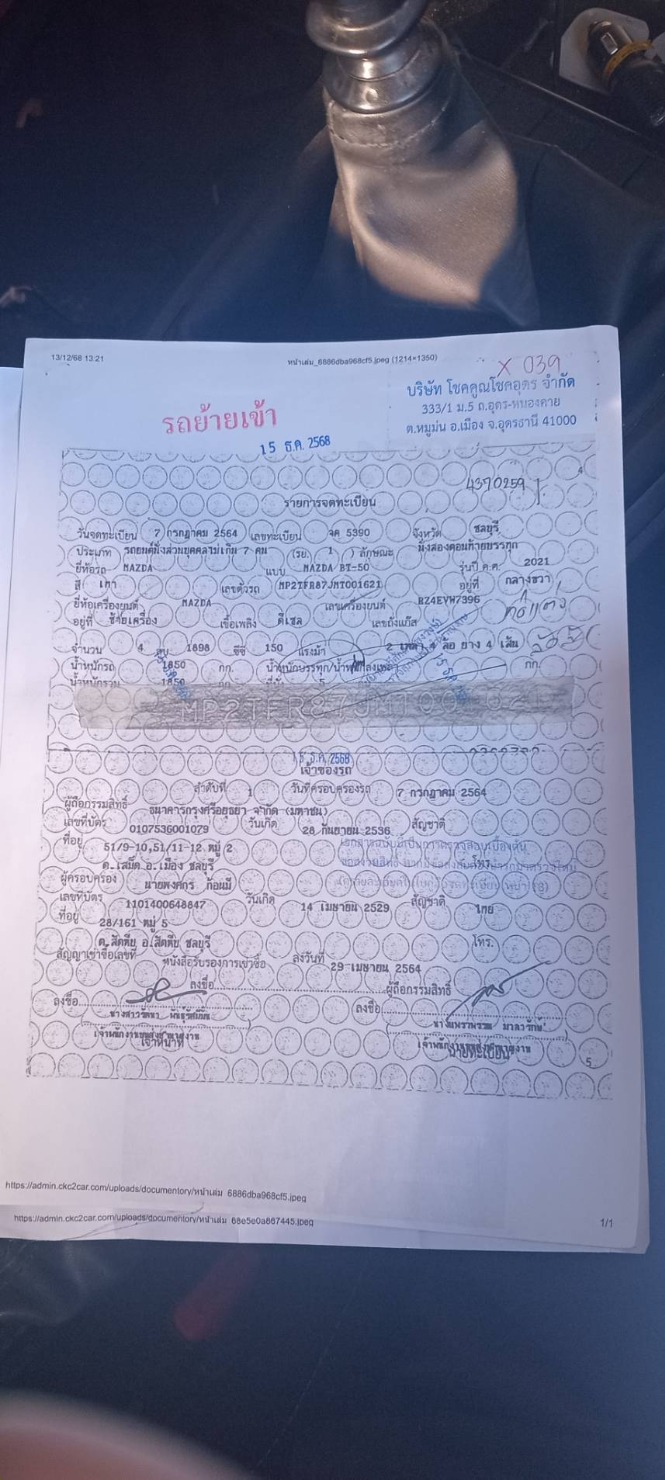 13/12/68 13:21
หน้าเล่ม_6886dba968cf5.jpeg (1214×1350)
X 039
บริษัท โชคคูณโชคอุดร จำกัด
333/1 ม.5 ถ.อุดร-หนองคาย
ต.หมูม่น อ.เมือง จ.อุดรธานี 41000
รถย้ายเข้า
15 ธ.ค. 2568
4370259
รายการจดทะเบียน
วันจดทะเบียน 7 กรกฎาคม 2564 เลขทะเบียน 5390 จังหวัด ชลบุรี
ประเภท รถยนต์นั่งส่วนบุคคลไม่เกิน 7 คน (รย. 1 ) ลักษณะ นั่งสองตอนท้ายบรรทุก
ยี่ห้อรถ MAZDA แบบ MAZDA BT-50 รุ่นปี ค.ศ. 2021
สี เทา เลขตัวรถ MP2TFR87JMT001621 อยู่ที่ กลางขวา
ยี่ห้อเครื่องยนต์ MAZDA เลขเครื่องยนต์ RZ4EVW7396
อยู่ที่ ซ้ายเครื่อง เชื้อเพลิง ดีเซล เลขถังแก๊ส
จำนวน 4 สูบ 1898 ซีซี 150 แรงม้า 2 เพลา 4 ล้อ ยาง 4 เส้น
น้ำหนักรถ 1850 กก. น้ำหนักบรรทุก/น้ำหนักลงเพลา กก.
น้ำหนักรวม 1850 กก. 5
15 ธ.ค. 2568
เจ้าของรถ
ลำดับที่ 1 วันที่ครอบครองรถ 7 กรกฎาคม 2564
ผู้ถือกรรมสิทธิ์ ธนาคารกรุงศรีอยุธยา จำกัด (มหาชน)
เลขที่บัตร 0107536001079 วันเกิด 28 กันยายน 2536 สัญชาติ
ที่อยู่ 51/9-10,51/11-12 หมู่ 2
ต.เสม็ด อ.เมือง ชลบุรี โทร.
ผู้ครอบครอง นายพงศกร ก้อนมี
เลขที่บัตร 1101400648847 วันเกิด 14 เมษายน 2529 สัญชาติ ไทย
ที่อยู่ 28/161 หมู่ 5
ต.สัตหีบ อ.สัตหีบ ชลบุรี โทร.
สัญญาเช่าซื้อเลขที่ หนังสือรับรองการเช่าซื้อ ลงวันที่ 29 เมษายน 2564
ลงชื่อ ผู้ถือกรรมสิทธิ์
ลงชื่อ ลงชื่อ
เจ้าหน้าที่ นายทะเบียน
5
https://admin.ckc2car.com/uploads/documentory/หน้าเล่ม_6886dba968cf5.jpeg
https://admin.ckc2car.com/uploads/documentory/หน้าเล่ม_68e5e0a667445.jpeg 1/1